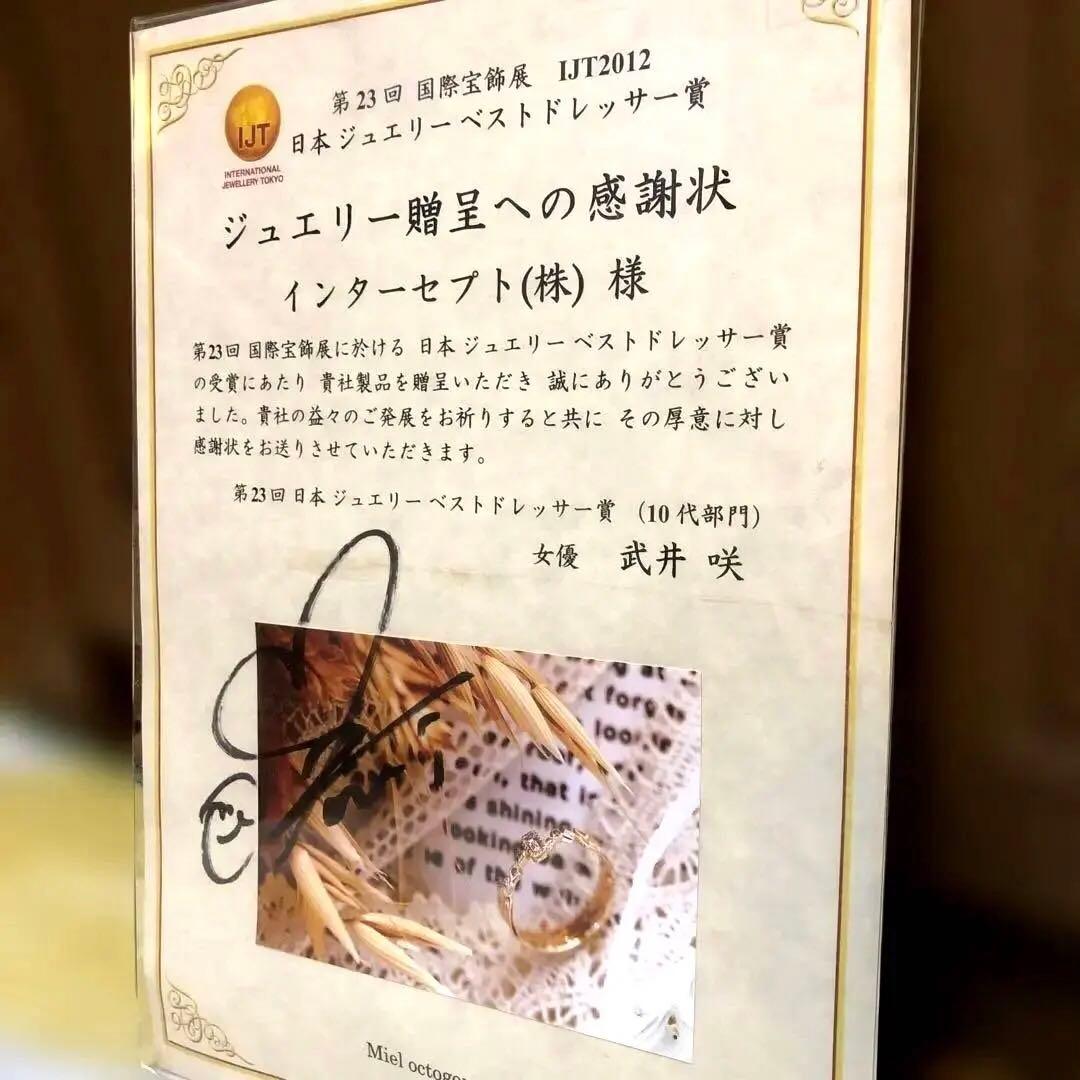 第23回 国際宝飾展 IJT2012
日本ジュエリーベストドレッサー賞
IJT
INTERNATIONAL
JEWELLERY TOKYO
ジュエリー贈呈への感謝状
インターセプト(株) 様
第23回 国際宝飾展に於ける 日本ジュエリーベストドレッサー賞
の受賞にあたり 貴社製品を贈呈いただき 誠にありがとうござい
ました。貴社の益々のご発展をお祈りすると共に その厚意に対し
感謝状をお送りさせていただきます。
第23回 日本ジュエリーベストドレッサー賞 （10代部門）
女優 武井 咲
at
forg
that
shining
looking
of the
Miel